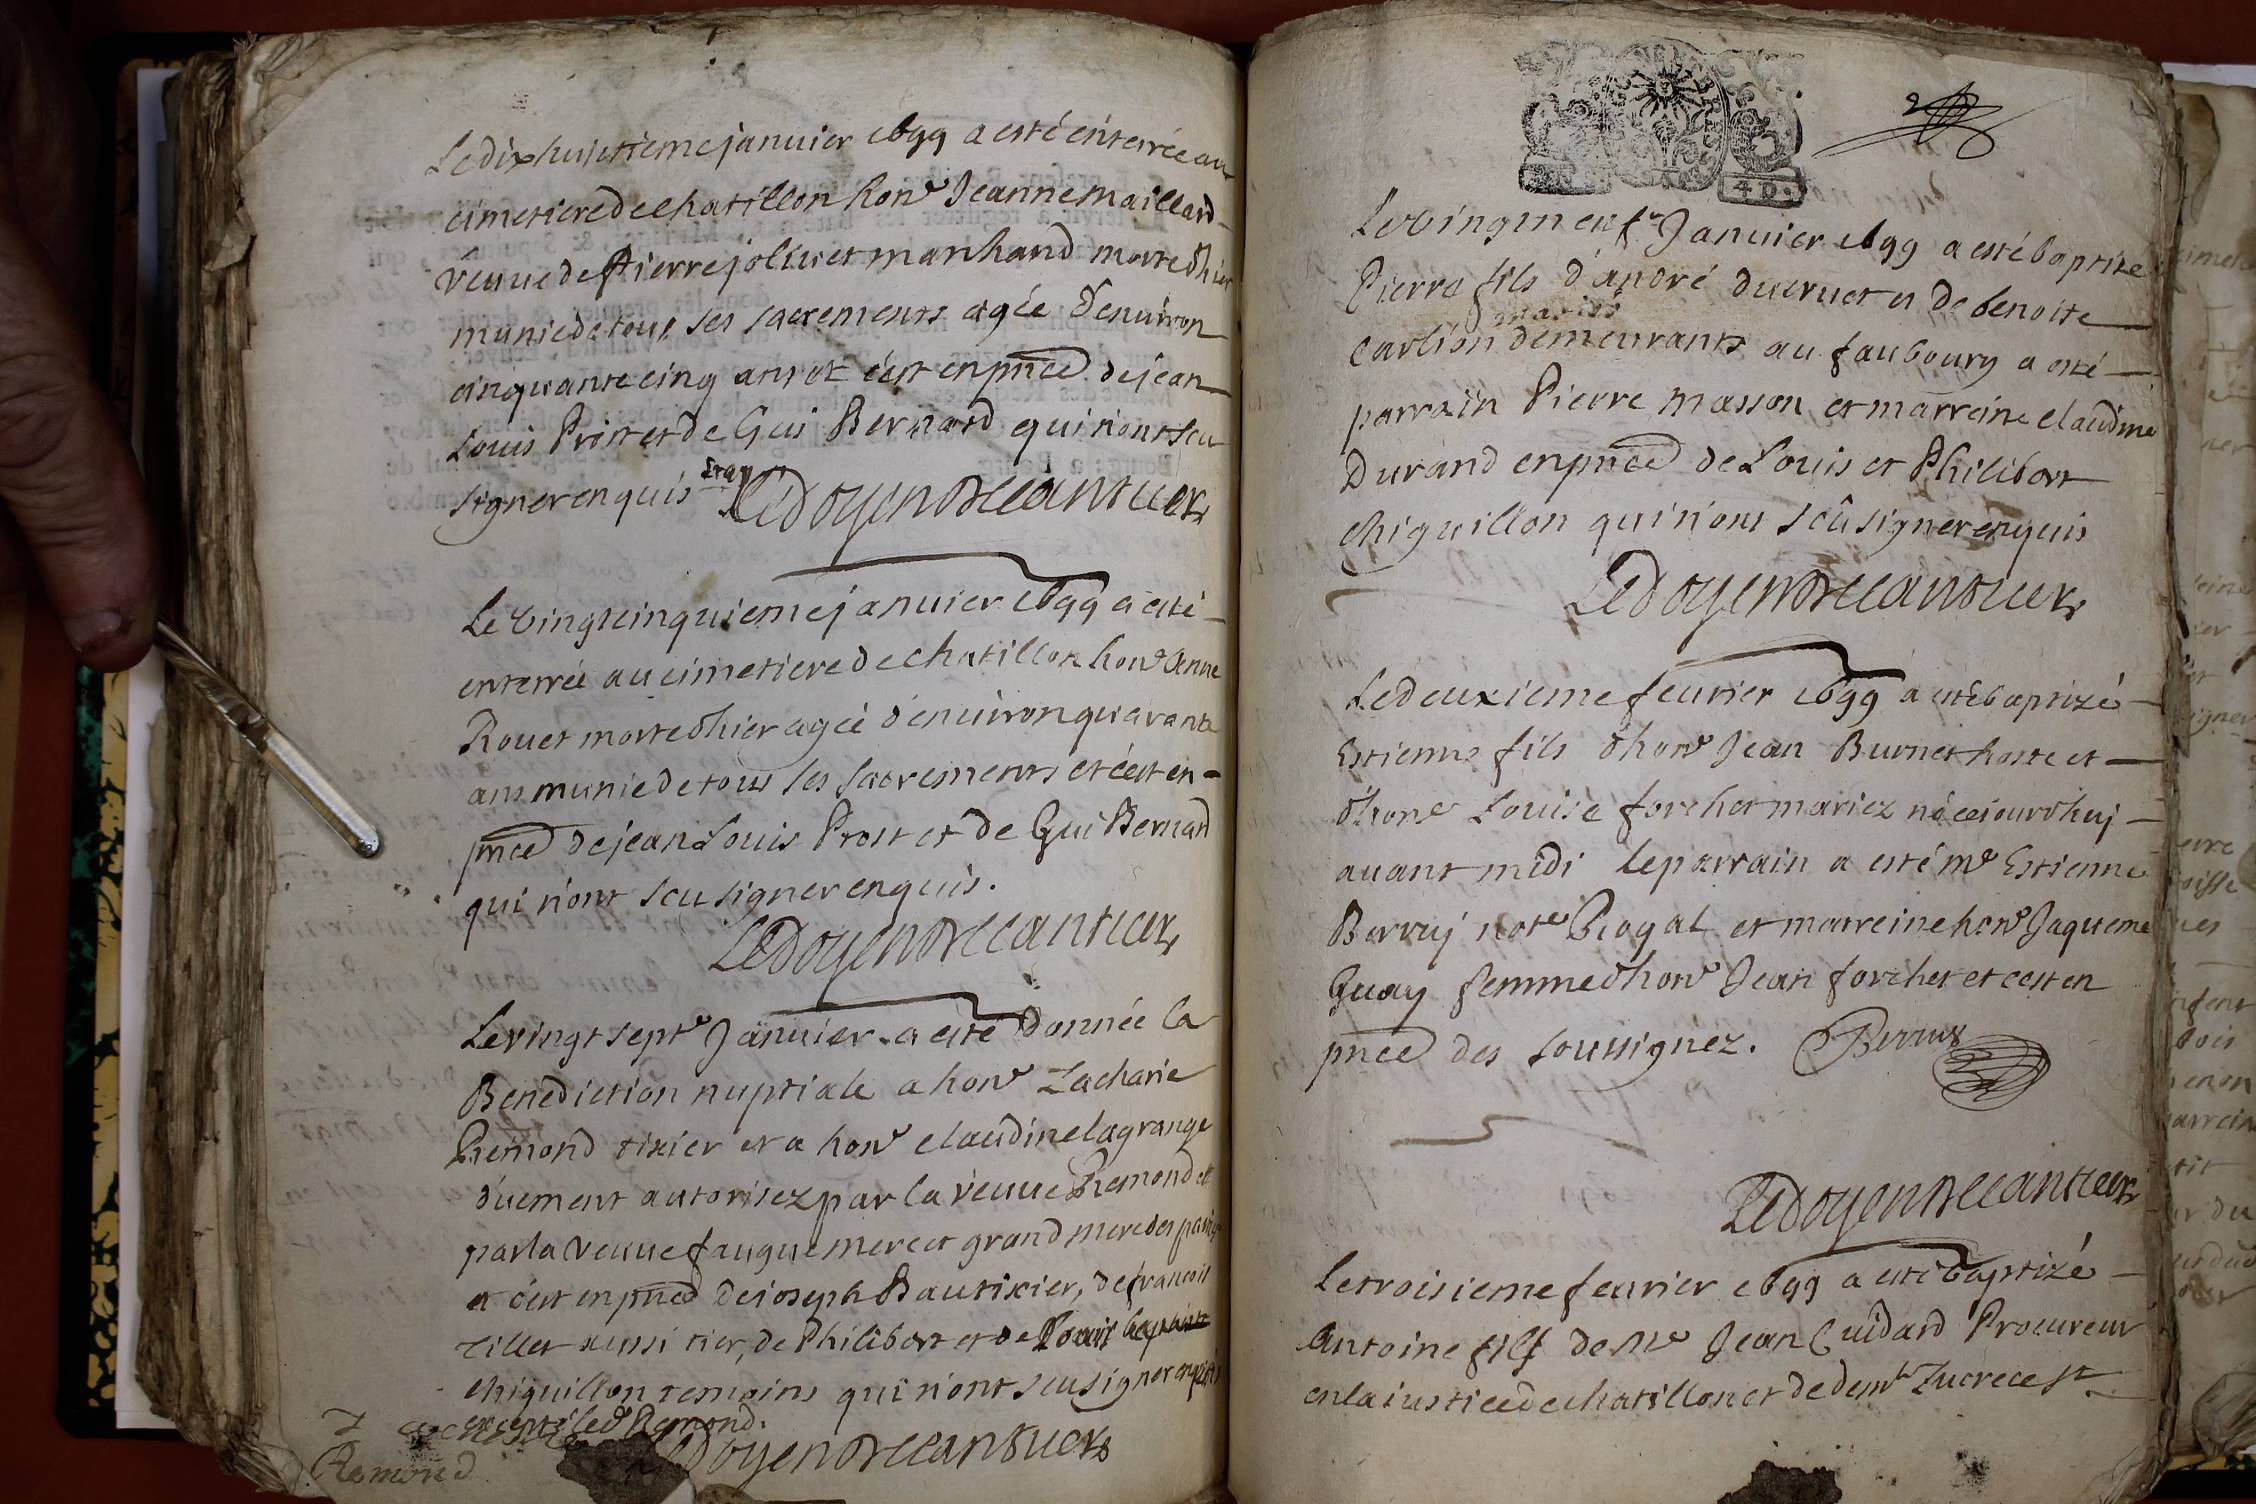 Le dix huistieme januier 1699 a esté enterrée au
cimetiere de chatillon hon^e Jeanne maillard
veuue de Pierre joliuet marchand morte d'hier
munie de tous ses sacrements agée d'enuiron
cinquante cinq ans et c'est en pñce de jean
Louis Prost et de Gui Bernard qui n'ont sceu
signer enquis
Ledoyen
Le vingt cinquieme januier 1699 a esté
enterrée au cimetiere de chatillon hon^e Anne
Rouet morte d'hier agée d'enuiron quarante
ans munie de tous les sacrements et c'est en
pñce de jean Louis Prost et de Gui Bernard
qui n'ont sceu signer enquis.
Ledoyen
Le vingt sept^e Januier a esté donnée la
Benediction nuptiale a hon^e Zacharie
Remond tixier et a hon^e claudine lagrange
düement autorisez par la veuue Remond et
par la veuue faugue mere et grand mere des parties
et c'est en pñce de joseph Bautixier, de francois
Tillet aussi tixier, de Philibert et de Louis
chiguillon temoins qui n'ont sceu signer enquis
excepté led Remond.
Remond
Ledoyen
4 D.
Le vingt neuf^e Januier 1699 a esté baptisé
Pierre fils d'andré duernet et de benoite
mariés
Carlion demeurants au faubourg a esté
parrain Pierre masson et marreine claudine
Durand en pñce de Louis et Philibert
chiguillon qui n'ont sceû signer enquis
Ledoyen
Le deuxieme feurier 1699 a esté baptizé
Estienne fils d'hon^e Jean Burnet hoste et
d'hon^e Louise forchet mariez né cejourdhuj
auant midi le parrain a esté m^e Estienne
Berruj not^e Royal et marreine hon^e Jaqueme
Guay femme d'hon^e Jean forchet et c'est en
pñce des soussignez. Berruy
Ledoyen
Le troisieme feurier 1699 a esté baptizé
Antoine fils de M^e Jean Cuidard Procureur
en la iustice de chatillon et de dem^lle Lucrece S^t